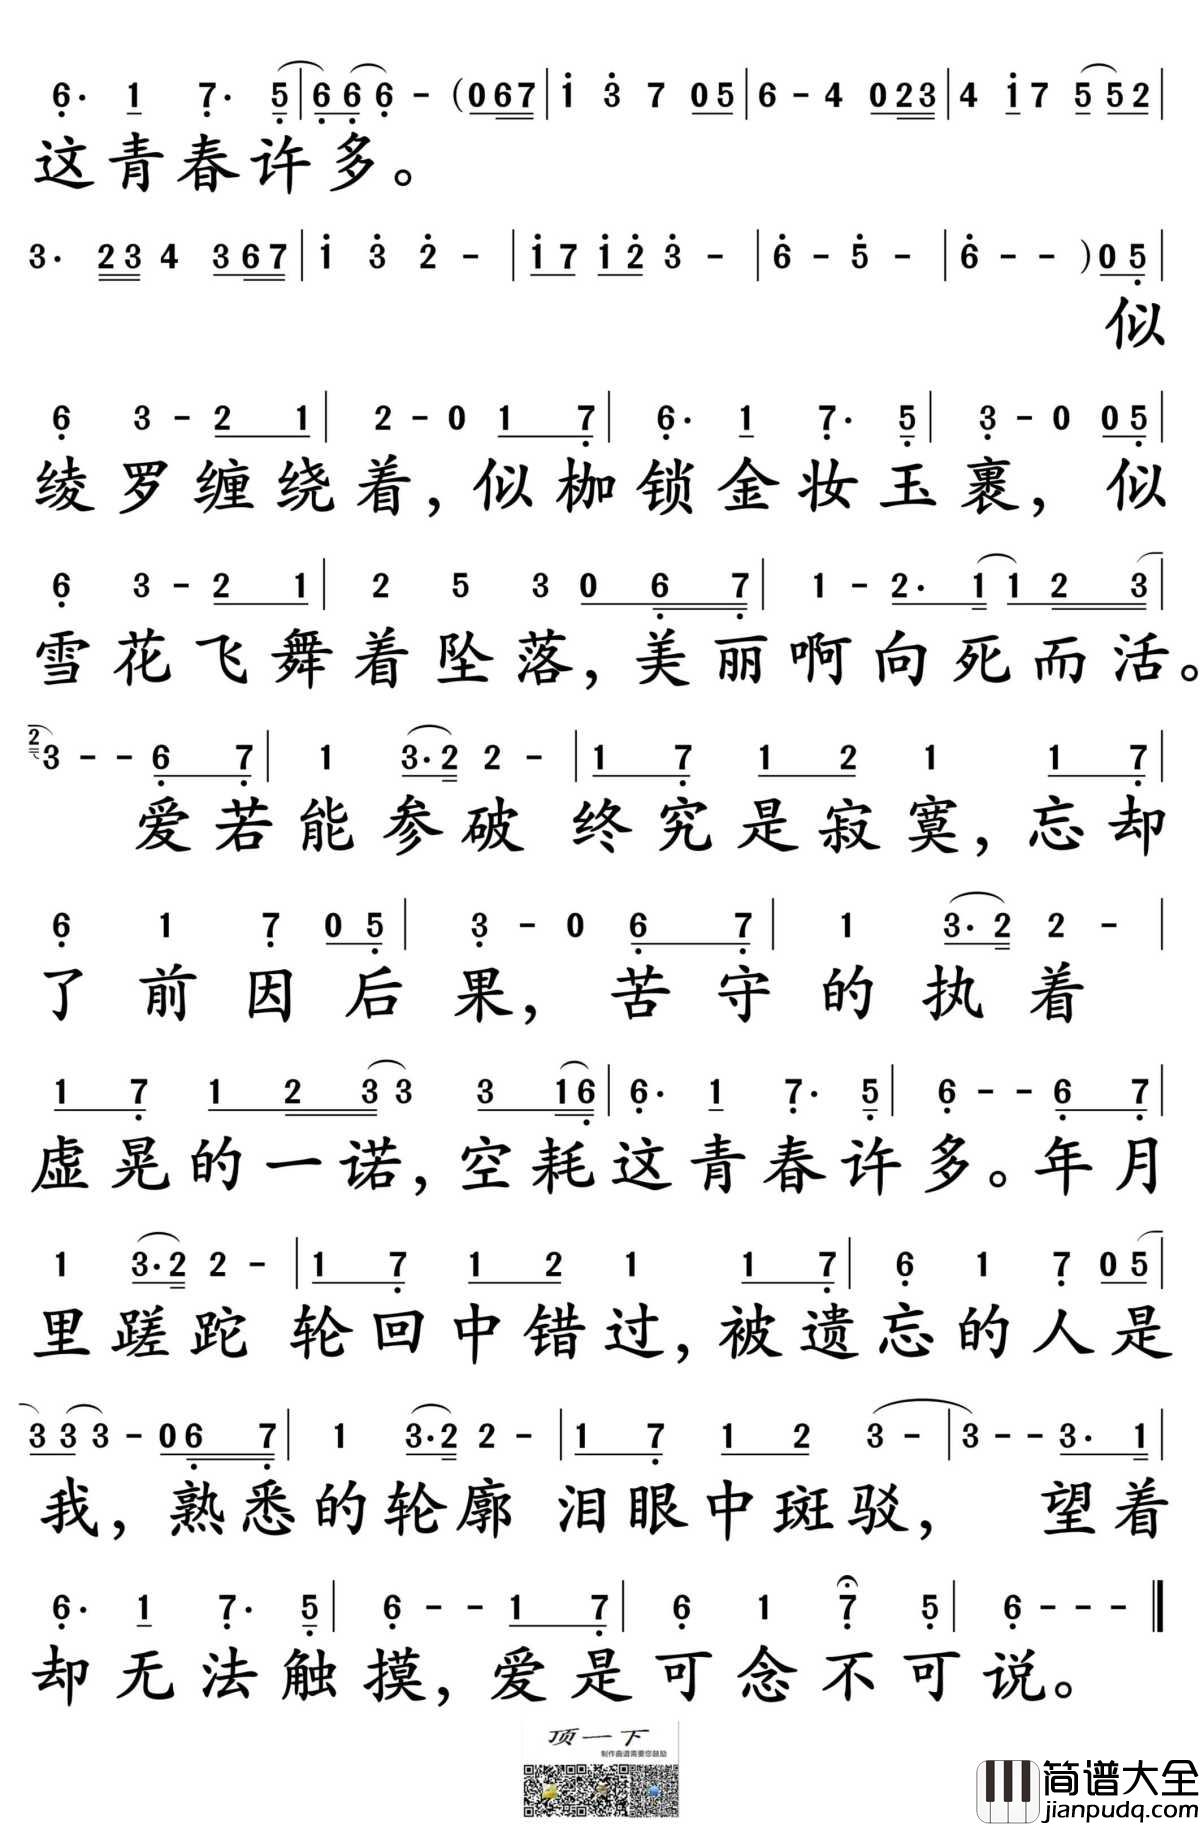 6· 1 7· 5 | 6 6 6 - (0 6 7 | 1 3 7 0 5 | 6 - 4 0 2 3 | 4 1 7 5 5 2 |
这青春许多。
3· 2 3 4 3 6 7 | 1 3 2 - | 1 7 1 2 3 - | 6 - 5 - | 6 - - ) 0 5 |
似
6 3 - 2 1 | 2 - 0 1 7 | 6· 1 7· 5 | 3 - 0 0 5 |
绫罗缠绕着，似枷锁金妆玉裹，似
6 3 - 2 1 | 2 5 3 0 6 7 | 1 - 2· 1 1 2 3 |
雪花飞舞着坠落，美丽啊向死而活。
2 3 - - 6 7 | 1 3·2 2 - | 1 7 1 2 1 1 7 |
爱若能参破 终究是寂寞，忘却
6 1 7 0 5 | 3 - 0 6 7 | 1 3·2 2 - |
了前因后果，苦守的执着
1 7 1 2 3 3 3 1 6 | 6· 1 7· 5 | 6 - - 6 7 |
虚晃的一诺，空耗这青春许多。年月
1 3·2 2 - | 1 7 1 2 1 1 7 | 6 1 7 0 5 |
里蹉跎 轮回中错过，被遗忘的人是
3 3 3 - 0 6 7 | 1 3·2 2 - | 1 7 1 2 3 - | 3 - - 3· 1 |
我，熟悉的轮廓 泪眼中斑驳，望着
6· 1 7· 5 | 6 - - 1 7 | 6 1 7 5 | 6 - - - ‖
却无法触摸，爱是可念不可说。
顶一下
制作曲谱需要您鼓励
简谱大全
jianpudq.com